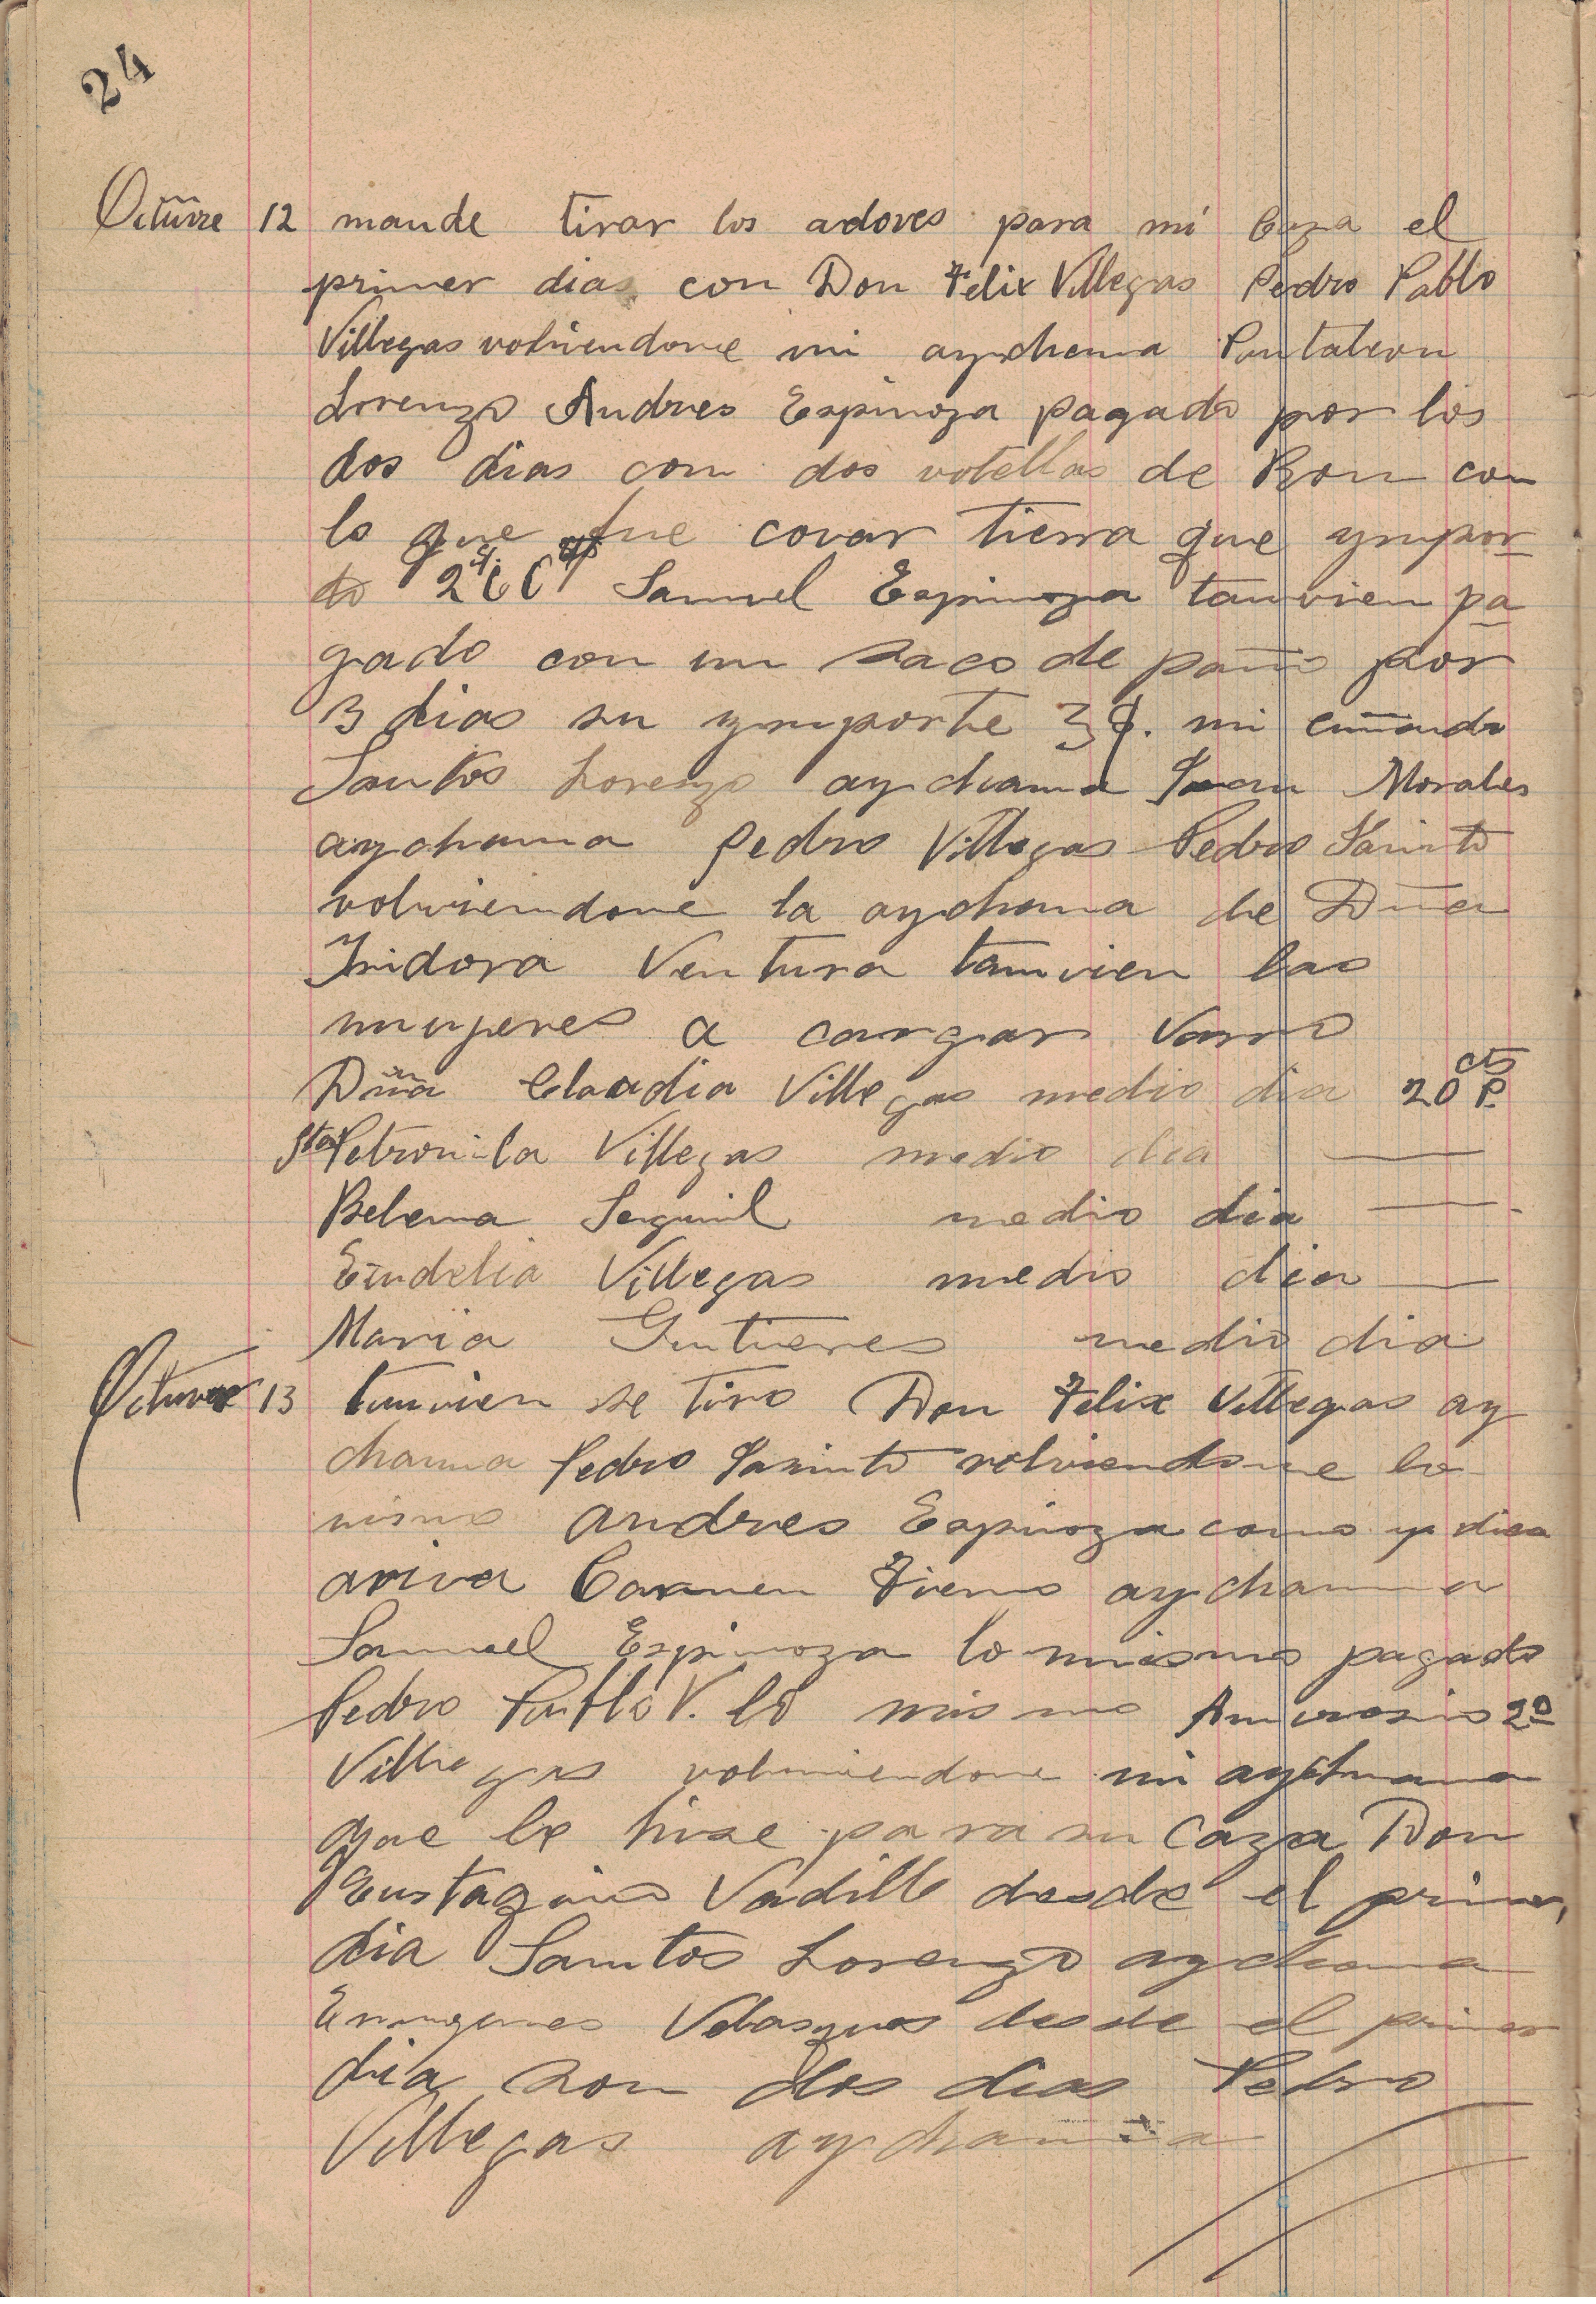 24
Octūvre 12 mande tirar los adoves para mi Caza el
primer dias con Don Felix Villegas Pedro Pablo
Villegas volviendome mi aychama Pantaleon
Lorenzo Andres Espinoza pagado por los
dos dias con dos votellas de Ron con
lo que fue covar tierra que ympor
to Samuel Espinoza tanvien pa
gado con un saco de paño por
3 dias su ymporte 3$. mi cuñando
Santos Lorenzo aychama Juan Morales
aychama Pedro Villegas Pedro Jasinto
volviendome la aychama de Dña
Isidora Ventura tamvien las
mugeres a cargar Varro
Dña Claudia Villegas medio dia 20 cts P.
Sta Petronila Villegas medio dia —
Belema medio dia —
Eudelia Villegas medio dia —
Maria Gutierres medio dia
Octuvre 13 tanvien se tiro Don Felix Villegas ay
chama Pedro Jasinto volviendome lo
mismo Andres Espinoza como ya dice
ariva Carmen Fierro aychama
Samuel Espinoza lo mismo pagado
Pedro Pablo V. lo mismo Amvrosio 2º
Villegas volviendome mi aychama
que le hise para su Caza Don
Eustaquio Vadillo desde el primer
dia Santos Lorenzo aychama
Velasques desde el primer
dia son dos dias Pedro
Villegas aychama